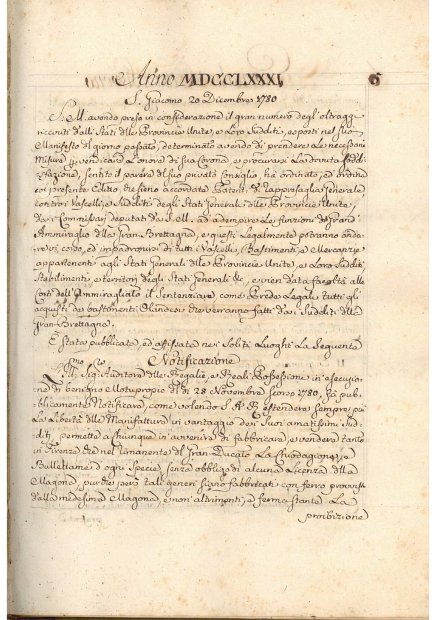 Anno MDCCLXXXI. 6
S. Giacomo 20 Dicembre 1780
S. M. avendo presa in considerazione il gran numero degl'oltraggi
ricevuti dalli Stati delle Provincie Unite, e Loro Sudditi, esposti nel suo
Manifesto del giorno passato, determinato avendo di prendere Le necessarie
Misure p vendicare L'onore di sua Corona, e procurarsi La dovuta Soddi-
sfazione, sentito il parere del suo privato Consiglio, ha ordinato, ed ordina
col presente Editto, che sieno accordate Patenti di Rappresaglia Generale
contro i Vascelli, e Sudditi degli Stati Generali delle Provincie Unite,
da i Commissarj deputati da S. M. ad adempire Le funzioni di Grand'
Ammiraglio della Gran Brettagna, e questi Legalmente potranno anda-
re in corso, ed impadronirsi di tutti i Vascelli, Bastimenti, e Mercanzie
appartenenti agli Stati Generali delle Provincie Unite, e Loro Sudditi,
Stabilimenti e territorj degli Stati Generali &c, e vien data facoltà alle
Corti dell'Ammiragliato il Sentenziare come Prede Legali tutti gli
acquisti dei bastimenti Olandesi che verranno fatti da i Sudditi della
Gran Brettagna.
È stata pubblicata, ed affissata nei Soliti Luoghi La Seguente
Notificazione
Ill.mo Sig. Auditore delle Regalie, e Reali Possessioni in esecuzione
di benigno Motuproprio del dì 28 Novembre 1780, fà pu-
blicamente Notificare, come volendo S. A. R. estendere sempre più
La Libertà delle Manifatture in vantaggio dei Suoi amatissimi Sud-
diti, permette a chiunque in avvenire di fabbricare, e vendere tanto
in Firenze che nel rimanente del Gran-Ducato La Chiodagione, e
Bullettame d'ogni Specie, senza obbligo di alcuna Licenza della
Magona, purchè però tali generi siano fabbricati con ferro provvisto
dalla medesima Magona, e non altrimenti, e ferma stante La
proibizione